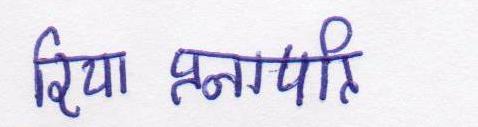 रिया प्रजापति